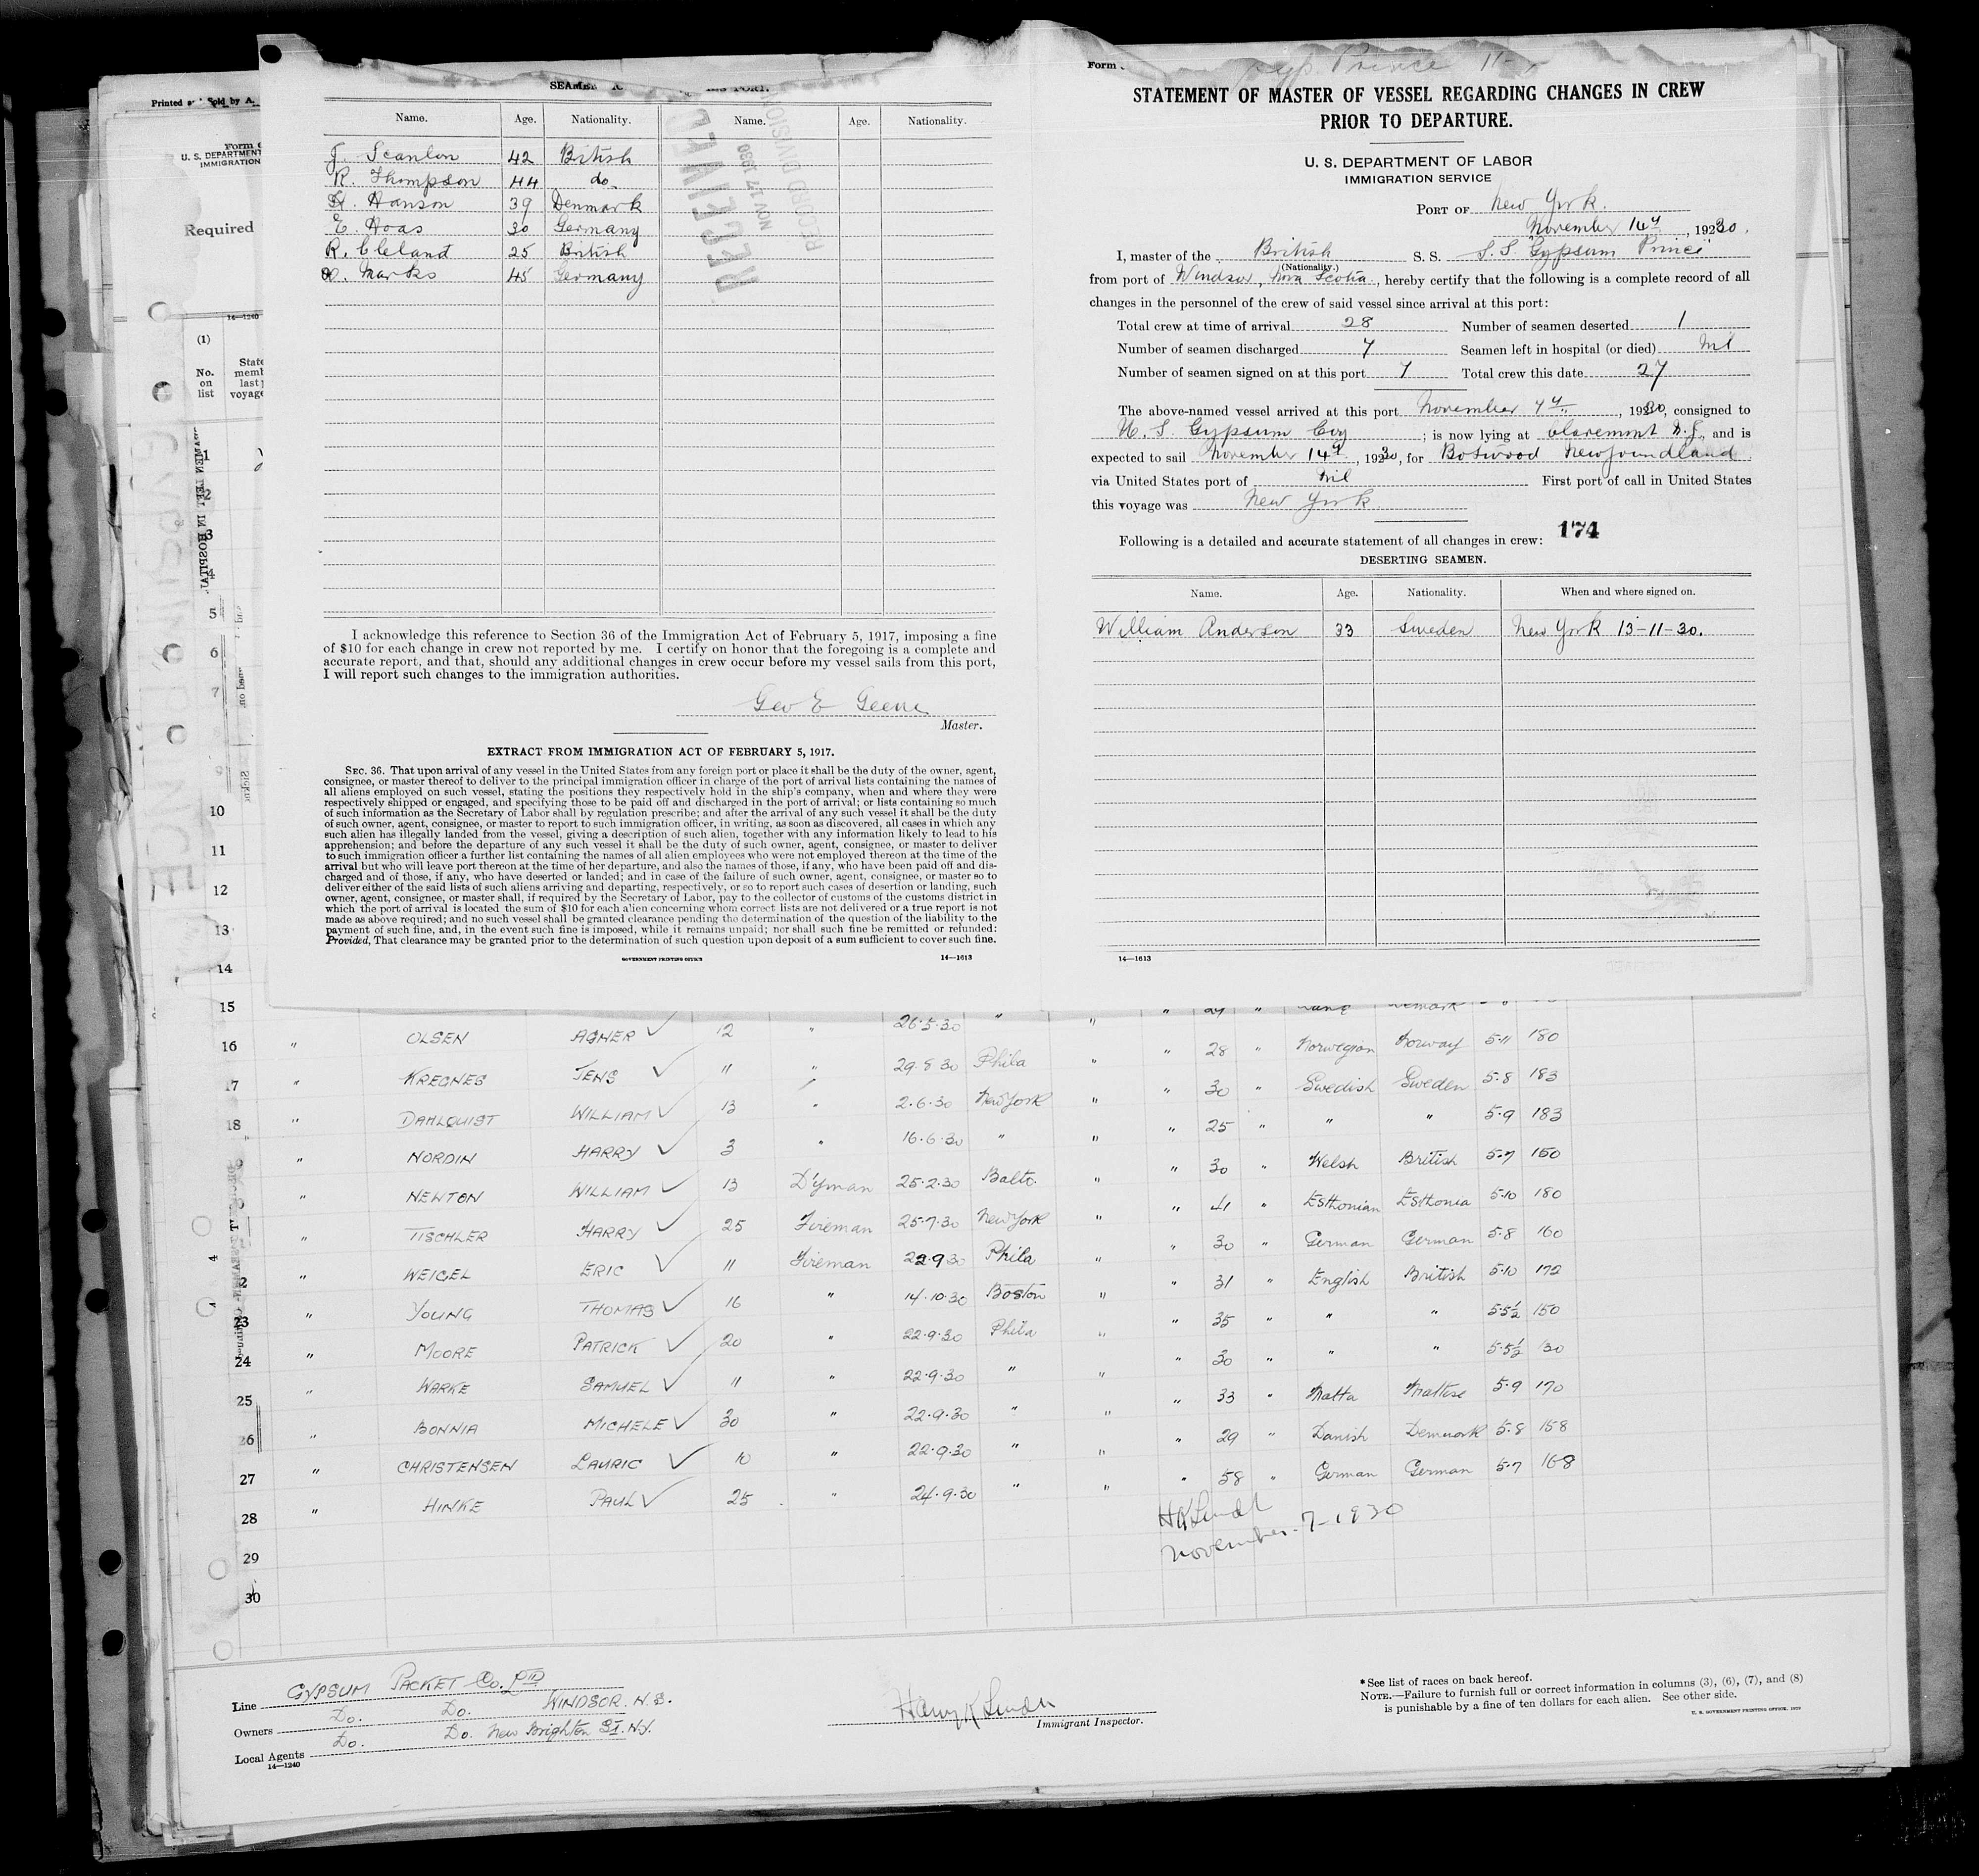 Printed and Sold by A.
Form
U. S. DEPARTMENT
IMMIGRATION
Required
14—1240
(1)
No.
on
list
State
memb
last
voyage
SEAMEN
Name. Age. Nationality. Name. Age. Nationality.
J. Scanlon 42 British
R. Thompson 44 do.
K. Hanson 39 Denmark
E. Haas 30 Germany
R. Cleland 25 British
Marks 45 Germany
RECEIVED
NOV 17 1930
RECORD DIVISION
I acknowledge this reference to Section 36 of the Immigration Act of February 5, 1917, imposing a fine
of $10 for each change in crew not reported by me. I certify on honor that the foregoing is a complete and
accurate report, and that, should any additional changes in crew occur before my vessel sails from this port,
I will report such changes to the immigration authorities.
Geo E
Master.
EXTRACT FROM IMMIGRATION ACT OF FEBRUARY 5, 1917.
SEC. 36. That upon arrival of any vessel in the United States from any foreign port or place it shall be the duty of the owner, agent,
consignee, or master thereof to deliver to the principal immigration officer in charge of the port of arrival lists containing the names of
all aliens employed on such vessel, stating the positions they respectively hold in the ship's company, when and where they were
respectively shipped or engaged, and specifying those to be paid off and discharged in the port of arrival; or lists containing so much
of such information as the Secretary of Labor shall by regulation prescribe; and after the arrival of any such vessel it shall be the duty
of such owner, agent, consignee, or master to report to such immigration officer, in writing, as soon as discovered, all cases in which any
such alien has illegally landed from the vessel, giving a description of such alien, together with any information likely to lead to his
apprehension; and before the departure of any such vessel it shall be the duty of such owner, agent, consignee, or master to deliver
to such immigration officer a further list containing the names of all alien employees who were not employed thereon at the time of the
arrival but who will leave port thereon at the time of her departure, and also the names of those, if any, who have been paid off and dis-
charged and of those, if any, who have deserted or landed; and in case of the failure of such owner, agent, consignee, or master so to
deliver either of the said lists of such aliens arriving and departing, respectively, or so to report such cases of desertion or landing, such
owner, agent, consignee, or master shall, if required by the Secretary of Labor, pay to the collector of customs of the customs district in
which the port of arrival is located the sum of $10 for each alien concerning whom correct lists are not delivered or a true report is not
made as above required; and no such vessel shall be granted clearance pending the determination of the question of the liability to the
payment of such fine, and, in the event such fine is imposed, while it remains unpaid; nor shall such fine be remitted or refunded:
Provided, That clearance may be granted prior to the determination of such question upon deposit of a sum sufficient to cover such fine.
GOVERNMENT PRINTING OFFICE 14—1613
Form
Gyp Prince 11-
STATEMENT OF MASTER OF VESSEL REGARDING CHANGES IN CREW
PRIOR TO DEPARTURE.
U. S. DEPARTMENT OF LABOR
IMMIGRATION SERVICE
PORT OF New York.
November 14th, 1930.
I, master of the British S. S. S.S. "Gypsum Prince"
(Nationality.)
from port of Windsor, Nova Scotia, hereby certify that the following is a complete record of all
changes in the personnel of the crew of said vessel since arrival at this port:
Total crew at time of arrival 28 Number of seamen deserted 1
Number of seamen discharged 7 Seamen left in hospital (or died) Nil
Number of seamen signed on at this port 7 Total crew this date 27
The above-named vessel arrived at this port November 7th, 1930, consigned to
U. S. Gypsum Coy; is now lying at Claremont N.J., and is
expected to sail November 14th, 1930, for Botwood Newfoundland
via United States port of Nil First port of call in United States
this voyage was New York.
174
Following is a detailed and accurate statement of all changes in crew:
DESERTING SEAMEN.
Name. Age. Nationality. When and where signed on.
William Anderson 33 Sweden New York 13-11-30.
14—1613
1
2
3
4
5
6
7
10
11
12
13
14
15
16 " OLSEN AGNER ✓ 12 " 26.5.30 " " " 29 "
17 " KREGNES JENS ✓ 11 " 29.8.30 Phila " " 28 " Norwegian Norway 5-11 180
18 " DAHLQUIST WILLIAM ✓ 13 " 2.6.30 New York " " 30 " Swedish Sweden 5.8 183
" NORDIN HARRY ✓ 3 " 16.6.30 " " " 25 " " " 5.9 183
" NEWTON WILLIAM ✓ 13 D'yman 25.2.30 Balto. " " 30 " Welsh British 5.7 150
" TISCHLER HARRY ✓ 25 Fireman 25.7.30 New York " " 41 " Esthonian Esthonia 5.10 180
" WEIGEL ERIC ✓ 11 Fireman 22.9.30 Phila " " 30 " German German 5.8 160
23 " YOUNG THOMAS ✓ 16 " 14.10.30 Boston " " 31 " English British 5.10 172
24 " MOORE PATRICK ✓ 20 " 22.9.30 Phila " " 35 " " " 5.5½ 150
25 " WARKE SAMUEL ✓ 11 " 22.9.30 " " " 30 " " " 5.5½ 130
26 " BONNIA MICHELE ✓ 30 " 22.9.30 " " " 33 " Malta Maltese 5.9 170
27 " CHRISTENSEN LAURIC ✓ 10 " 22.9.30 " " " 29 " Danish Denmark 5.8 158
28 " HINKE PAUL ✓ 25 " 24.9.30 " " " 58 " German German 5.7 168
29
30
November-7-1930
Line GYPSUM PACKET Co. LTD
Owners Do. Do. WINDSOR. N.S.
Local Agents Do. Do. New Brighton S.I. N.Y.
14—1240
Harry K
Immigrant Inspector.
*See list of races on back hereof.
NOTE.—Failure to furnish full or correct information in columns (3), (6), (7), and (8)
is punishable by a fine of ten dollars for each alien. See other side.
U. S. GOVERNMENT PRINTING OFFICE